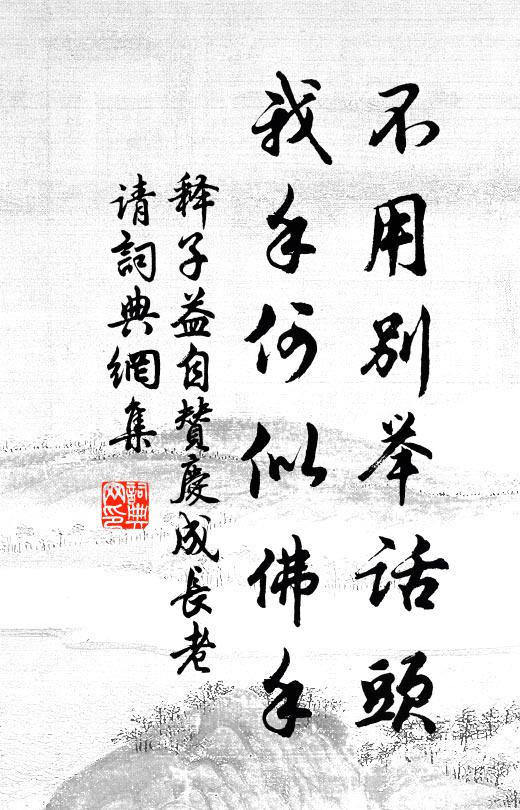 不用別举话頭
我手何似佛手
释子益自贊慶成長老
请詞典網集
詞典网印